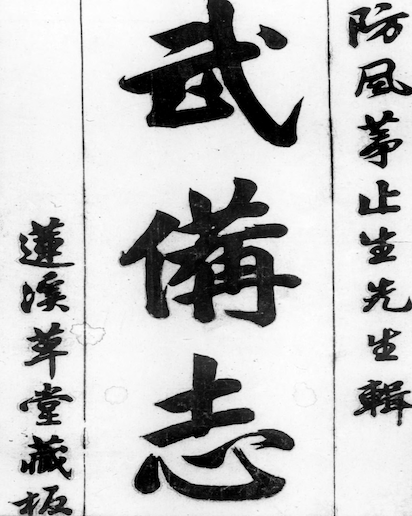 防風茅止生先生輯
武備志
蓮溪草堂藏板